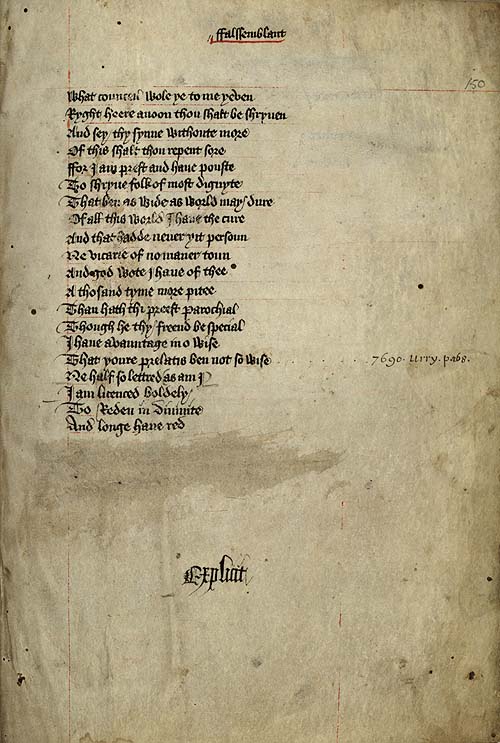 ffalssemblant
150
What counceil wole ye to me yeven
Ryght heere anoon thou shalt be shryuen
And sey thy synne withoute more
Of this shalt thou repent sore
ffor I am prest and haue pouste
To shryue folk of most dignyte
That ben as wide as world may dure
Of all this world I haue the cure
And that hadde neuer yit persoun
Ne vicarie of no maner toun
And god wote I haue of thee
A thosand tyme more pitee
Than hath thi preest parochial
Though he thy freend be special
I haue avauntage in o wise
That youre prelatis ben not so wise . . . . 7690. Urry. p. 268.
Ne half so lettred as am I
I am licenced boldely
To Reden in Divinite
And longe haue red
Explicit